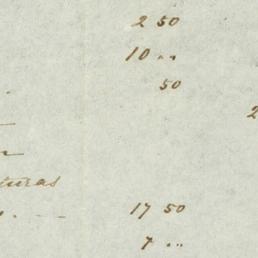 2 50
10 ..
50
2
turas
17 50
7 ...